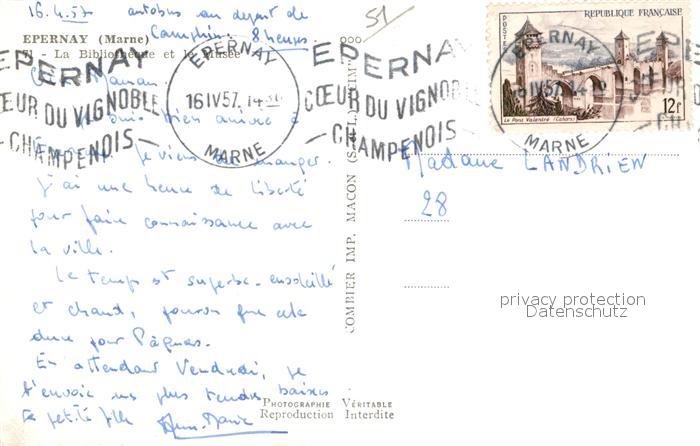 16.4.57 autobus au départ de
Camphin. 8 heures.
51
EPERNAY (Marne)
71 - La Bibliothèque et le Musée
000
EPERNAY
CŒUR DU VIGNOBLE
- CHAMPENOIS -
EPERNAY
16 IV 57. 14
MARNE
EPERNAY
CŒUR DU VIGNOBLE
- CHAMPENOIS -
REPUBLIQUE FRANÇAISE
POSTES
Le Pont Valentré (Cahors)
12F
EPERNAY
16 IV 57. 14
MARNE
Maman.
suis bien arrivée à
je viens de manger.
J'ai une heure de liberté
pour faire connaissance avec
la ville.
Le temps est superbe. ensoleillé
et chaud, pourvu que cela
dure pour Pâques.
En attendant Vendredi, je
t'envoie mes plus tendres baisers
Ta petite fille Anne-Marie
COMBIER IMP. MACON
Madame LANDRIEN
28
PHOTOGRAPHIE VÉRITABLE
Reproduction Interdite
privacy protection
Datenschutz